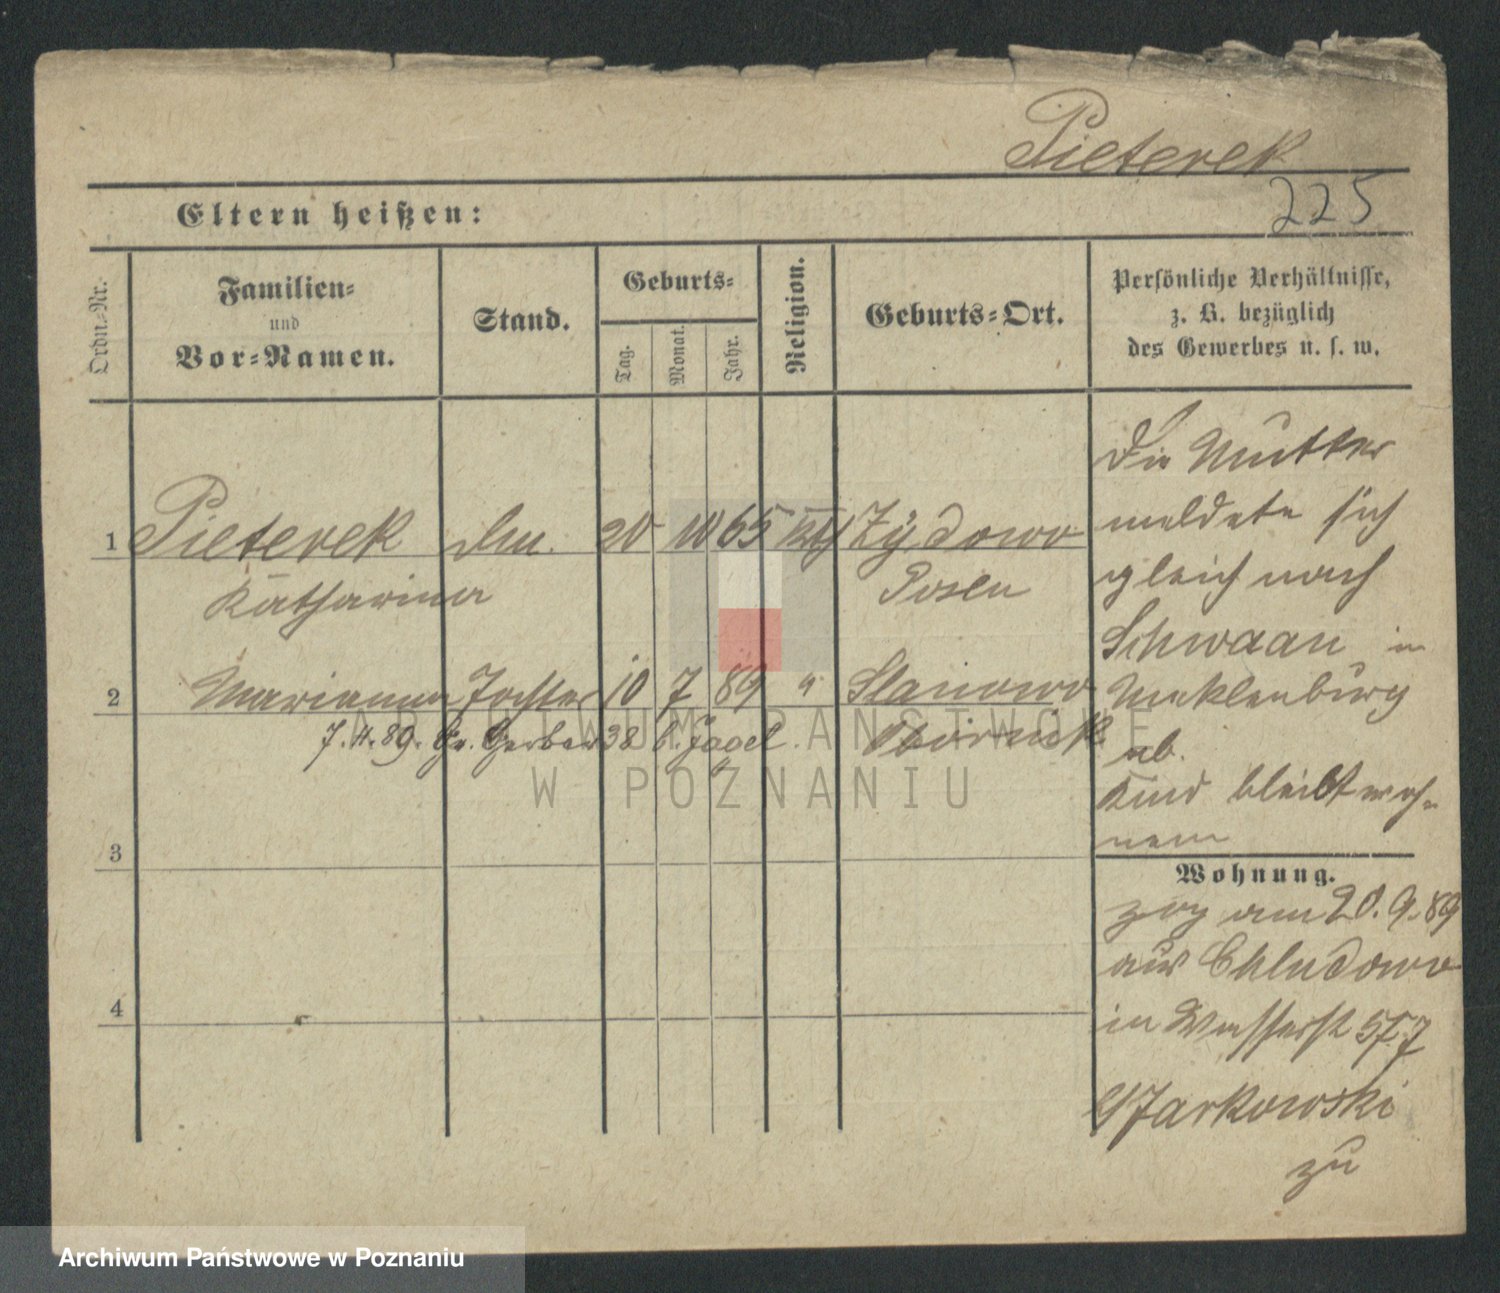 Pieterek
225
Eltern heißen:
Ordn.-Nr.
Familien-
und
Vor-Namen.
Stand.
Geburts-
Tag.
Monat.
Jahr.
Religion.
Geburts-Ort.
Persönliche Verhältnisse,
z. B. bezüglich
des Gewerbes u. s. w.
1 Pieterek 20 10 65 kth Żydowo
Katharina Posen
2 Marianna Tochter 10 7 89 " Stanowo
7. 11. 89. Gr. Gerber 38 b. Jagel. Obornik
3
4
Die Mutter
meldete sich
gleich nach
Schwaan in
Mecklenburg
ab.
Kind bleibt woh-
nen
Wohnung.
zog am 20. 9. 89
aus Chludowo
in Wasserst
Jarkowski
zu
ARCHIWUM PAŃSTWOWE
W POZNANIU
Archiwum Państwowe w Poznaniu